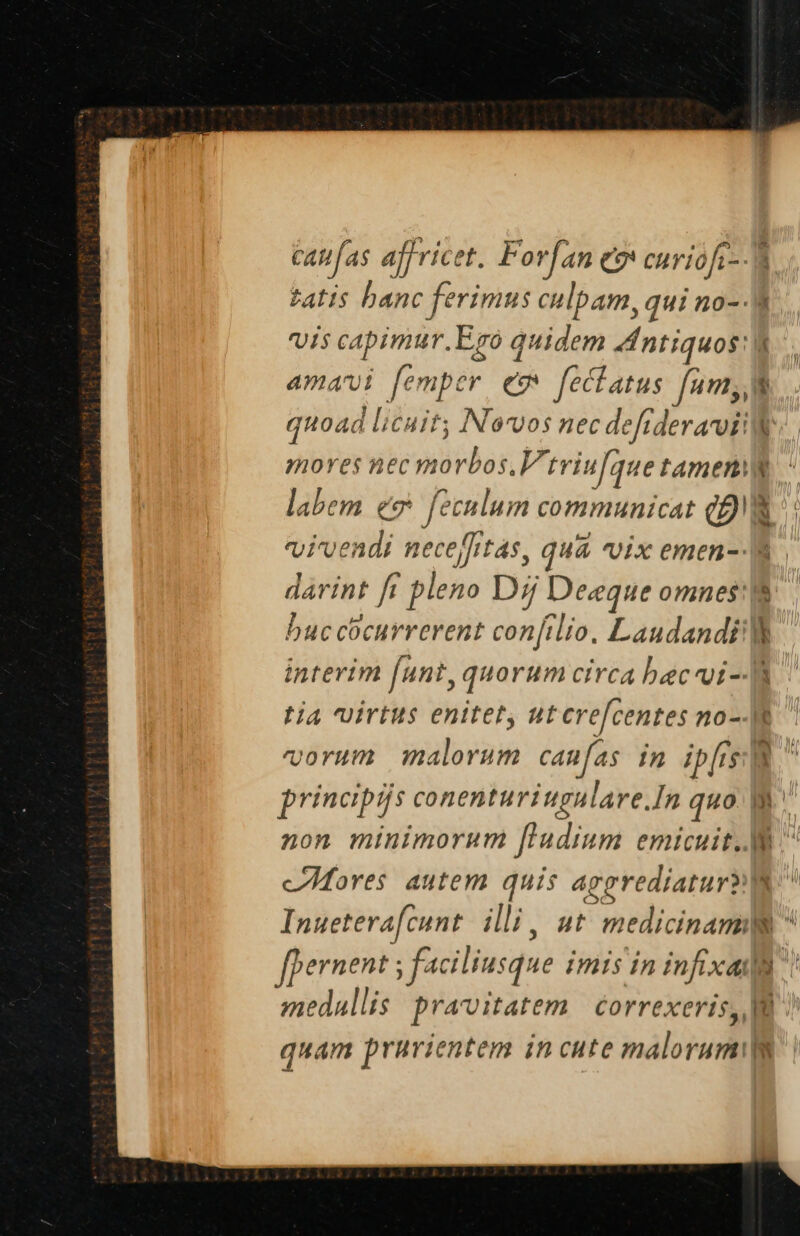 cauſas affricet. Forſan & curioſi-
tatis hanc ferimus culpam, qui no-
vis capimur. Ego quidem Antiquos
amavi ſemper & ſectatus ſum,
quoad licuit; Novos nec deſideravi
mores nec morbos. Vtriuſque tamen
labem & ſeculum communicat &
vivendi neceſſitas, quã vix emen-
darint ſi pleno Dij Deæque omnes
huc cõcurrerent conſilio. Laudandi
interim ſunt, quorum circa hæc vi-
tia virtus enitet, ut creſcentes no-
vorum malorum cauſas in ipſis
principijs conentur iugulare. In quo
non minimorum ſtudium emicuit.
Mores autem quis aggrediatur?
Inueteraſcunt illi, ut medicinam
ſpernent; faciliusque imis in infixa
medullis pravitatem correxeris,
quam prurientem in cute malorum